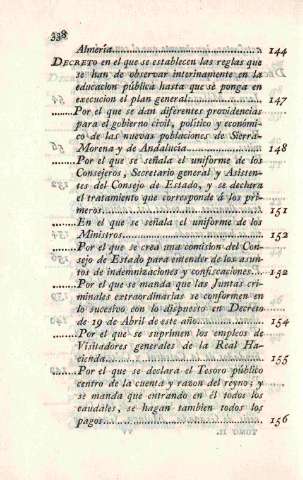 338
Almería. 144
DECRETO en el que se establecen las reglas que
se han de observar interinamente en la
educacion pública hasta que se ponga en
execucion el plan general. 147
......Por el que se dan diferentes providencias
para el gobierno civil, político y económi-
co de las nuevas poblaciones de Sierra-
Morena y de Andalucía 148
......Por el que se señala el uniforme de los
Consejeros, Secretario general y Asisten-
tes del Consejo de Estado, y se declara
el tratamiento que corresponde á los pri-
meros. 151
......En el que se señala el uniforme de los
Ministros. 152
......Por el que se crea una comision del Con-
sejo de Estado para entender de los asun-
tos de indemnizaciones y confiscaciones. 152
......Por el que se manda que las Juntas cri-
minales extraordinarias se conformen en
lo sucesivo con lo dispuesto en Decreto
de 19 de Abril de este año. 154
......Por el que se suprimen los empleos de
Visitadores generales de la Real Ha-
cienda. 155
......Por el que se declara el Tesoro público
centro de la cuenta y razon del reyno; y
se manda que entrando en él todos los
caudales, se hagan tambien todos los
pagos. 156